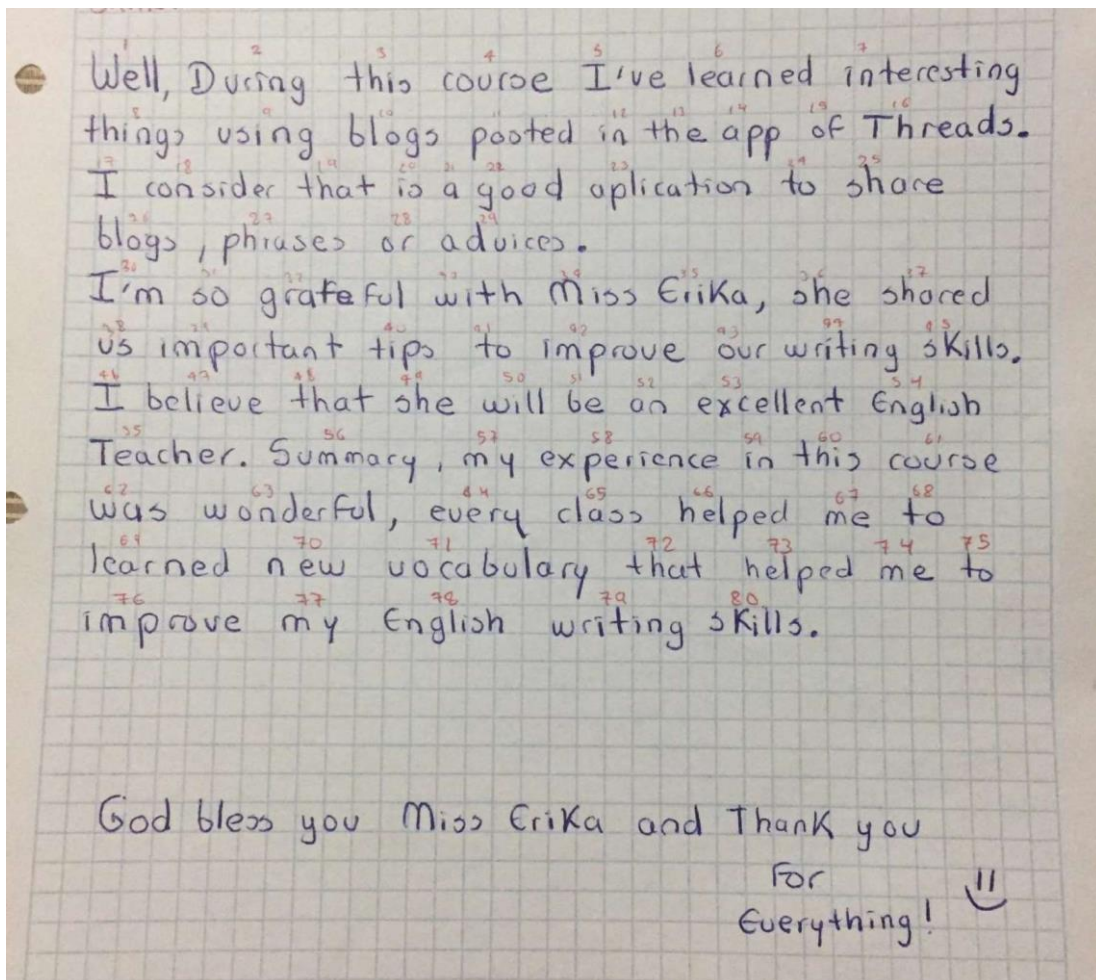 Well, During this course I've learned interesting
things using blogs posted in the app of Threads.
I consider that is a good aplication to share
blogs, phrases or advices.
I'm so grateful with Miss Erika, she shared
us important tips to improve our writing skills.
I believe that she will be an excellent English
Teacher. Summary, my experience in this course
was wonderful, every class helped me to
learned new vocabulary that helped me to
improve my English writing skills.
God bless you Miss Erika and Thank you
For
Everything!